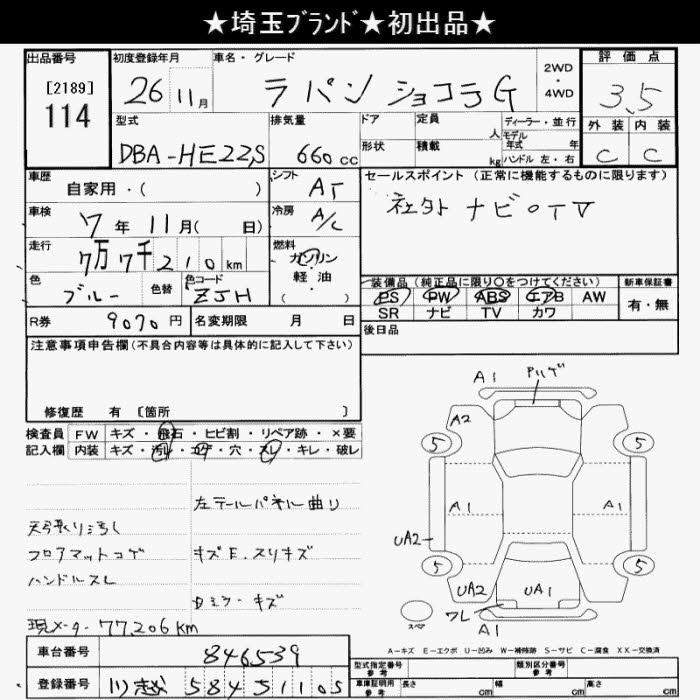 ★埼玉ﾌﾞﾗﾝﾄﾞ★初出品★
出品番号
[2189]
114
初度登録年月
26年11月
車名・グレード
ラパン ショコラG
2WD・4WD
評価点
3.5
型式
DBA-HE22S
排気量
660cc
ドア
形状
定員 人
積載 kg
ディーラー・並行
モデル年式 年
ハンドル 左・右
外装 内装
C C
車歴
自家用・( )
シフト
AT
セールスポイント (正常に機能するものに限ります)
社外ナビ○TV
車検
7年11月( 日)
冷房
A/C
走行
7万7千210km
燃料
ガソリン・軽油・( )
色
ブルー
色替
色コード
ZJH
装備品 (純正品に限り○をつけてください)
PS PW ABS エアB AW
SR ナビ TV カワ
新車保証書
有・無
R券
9070円
名変期限 月 日
後日品
注意事項申告欄(不具合内容等は具体的に記入して下さい)
修復歴 有 [箇所 ]
検査員記入欄
FW キズ・飛石・ヒビ割・リペア跡・×要
内装 キズ・汚レ・コゲ・穴・スレ・キレ・破レ
左テールパネル曲り
天張りヨゴレ
フロアマットコゲ
キズE.スリキズ
ハンドルスレ
Dミラーキズ
現メーター77,206km
A1 アリゲ
A2
5 5
A1 A1
UA2
5 5
UA2 UA1
ワレ
スペア
A1
A-キズ E-エクボ U-凹み W-補修跡 S-サビ C-腐食 XX-交換済
車台番号
846539
登録番号
川越 584う1105
型式指定番号
参考
類別区分番号
参考
車庫証明用
参考
長さ cm
幅 cm
高さ cm